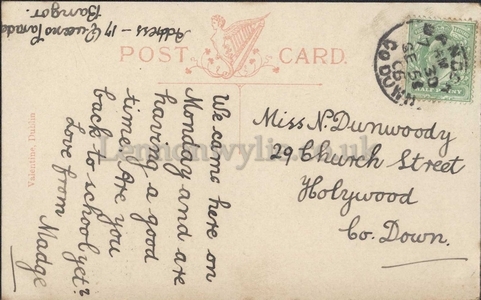 Address – 17 Queens Parade
Bangor.
POST CARD.
We came here on
Monday and are
having a good
time. Are you
back to school yet?
Love from Madge
Miss N. Dunwoody
29, Church Street
Holywood
Co. Down.
Valentine, Dublin
BANGOR
SE 5
06
CO DOWN
HALF PENNY
Lennonwylie.co.uk